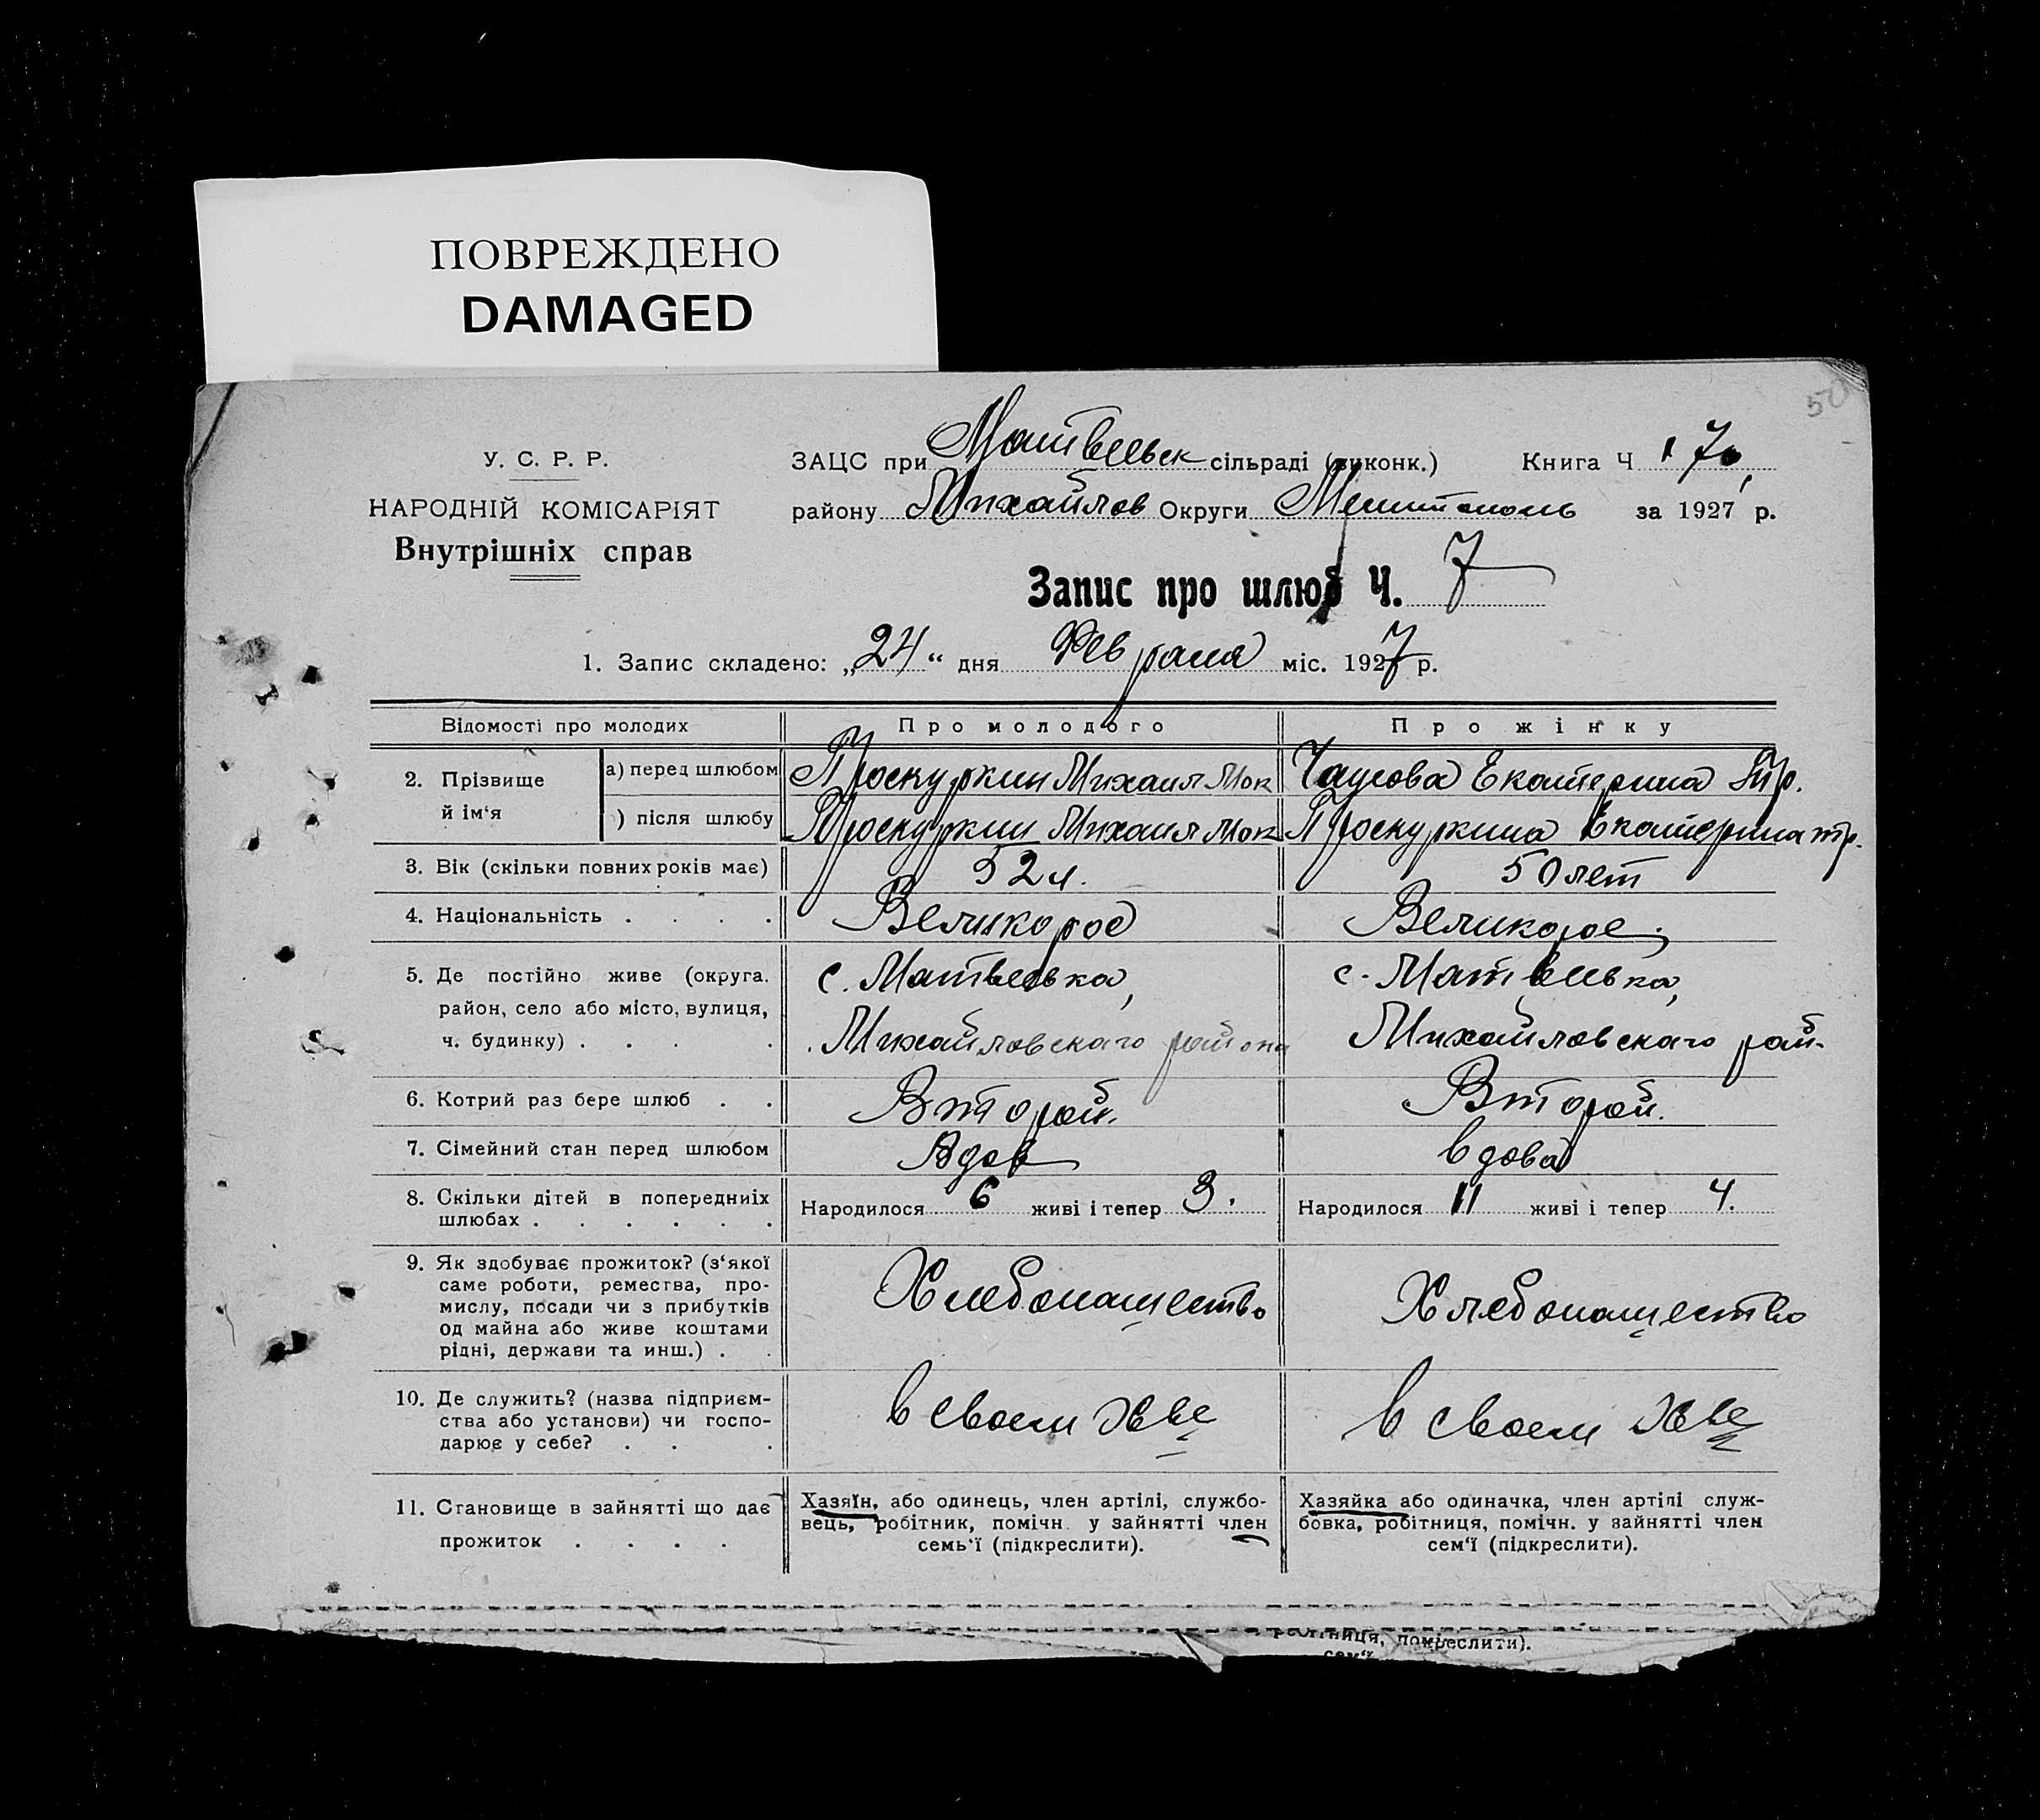 ПОВРЕЖДЕНО
DAMAGED
50
У. С. Р. Р.
НАРОДНІЙ КОМІСАРІЯТ
Внутрішніх справ
ЗАЦС при Матвеевск сільраді (виконк.) Книга Ч 17
району Михайлов Округи Мелитополь за 1927 р.
Запис про шлюб Ч. 7
1. Запис складено: „24“ дня Февраля міс. 1927 р.
Відомості про молодих Про молодого Про жінку
2. Прізвище й ім‘я а) перед шлюбом Проскуркин Михаил Мок Чаусова Екатерина Тр.
) після шлюбу Проскуркин Михаил Мок Проскуркина Екатерина тр.
3. Вік (скільки повних років має) 52 л. 50 лет
4. Національність . . . . Великорос Великорос.
5. Де постійно живе (округа, с. Матвеевка, с. Матвеевка,
район, село або місто, вулиця,
ч. будинку) . . . . Михайловскаго района Михайловскаго рай.
6. Котрий раз бере шлюб . . Второй. Второй.
7. Сімейний стан перед шлюбом Вдов вдова
8. Скільки дітей в попередниіх Народилося 6 живі і тепер 3. Народилося 11 живі і тепер 4.
шлюбах . . . . . .
9. Як здобуває прожиток? (з‘якої
саме роботи, ремества, про-
мислу, посади чи з прибутків Хлебопашество Хлебопашество
од майна або живе коштами
рідні, держави та инш.) . .
10. Де служить? (назва підприєм-
ства або установи) чи госпо- в своем хве в своем хве
дарює у себе? . . .
11. Становище в зайнятті що дає
прожиток . . . .
Хазяїн, або одинець, член артілі, службо-
вець, робітник, помічн. у зайнятті член
семь‘ї (підкреслити).
Хазяйка або одиначка, член артілі служ-
бовка, робітниця, помічн. у зайнятті член
сем‘ї (підкреслити).